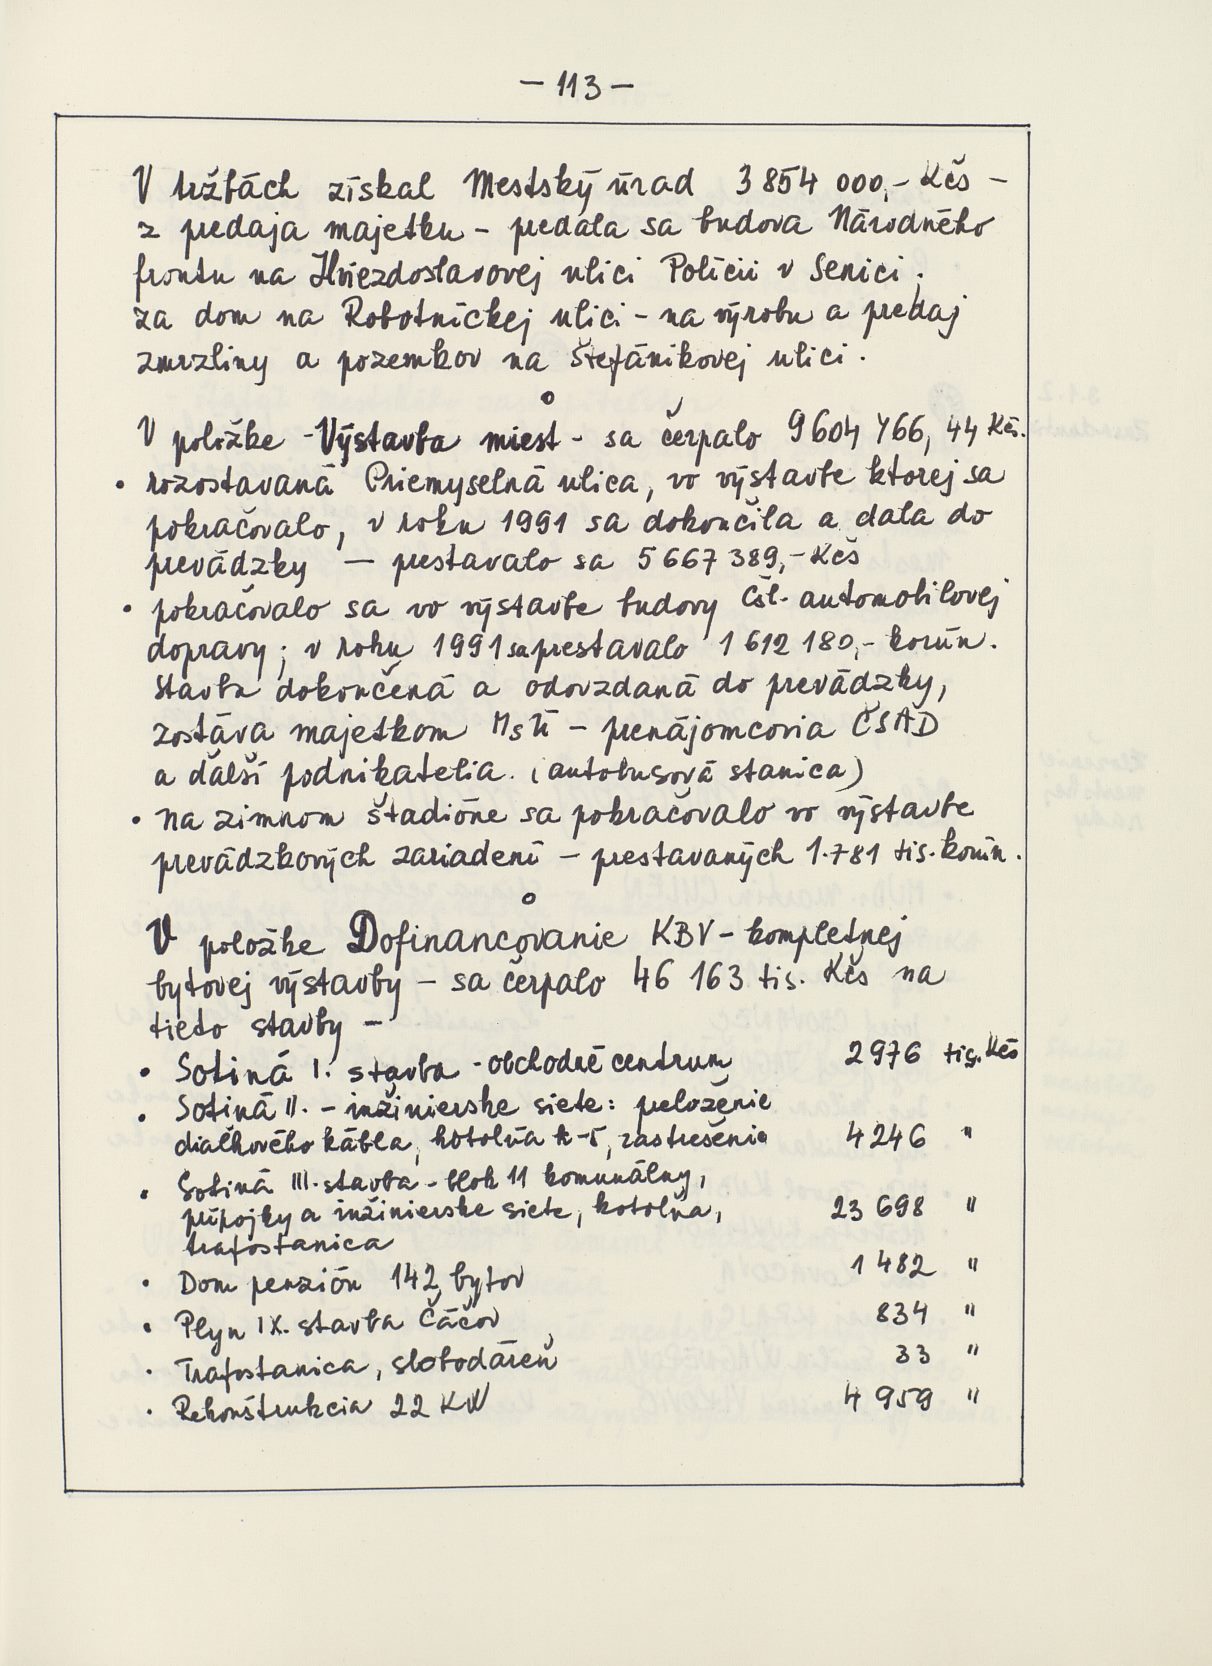 - 113 -
V tržbách získal Mestský úrad 3 854 000,- Kčs -
z predaja majetku - predala sa budova Národného
frontu na Hviezdoslavovej ulici Polícii v Senici;
za dom na Robotníckej ulici - na výrobu a predaj
zmrzliny a pozemkov na Štefánikovej ulici.
V položke - Výstavba miest - sa čerpalo 9 604 766,44 Kčs.
• rozostavaná Priemyselná ulica, vo výstavbe ktorej sa
pokračovalo, v roku 1991 sa dokončila a dala do
prevádzky — prestavalo sa 5 667 389,- Kčs
• pokračovalo sa vo výstavbe budovy Čsl. automobilovej
dopravy; v roku 1991 sa prestavalo 1 612 180,- korún.
Stavba dokončená a odovzdaná do prevádzky,
zostáva majetkom MsÚ - prenájomcovia ČSAD
a ďalší podnikatelia. (autobusová stanica)
• na zimnom štadióne sa pokračovalo vo výstavbe
prevádzkových zariadení - prestavaných 1.781 tis. korún.
V položke Dofinancovanie KBV - kompletnej
bytovej výstavby - sa čerpalo 46 163 tis. Kčs na
tieto stavby -
• Sotiná I. stavba - obchodné centrum 2976 tis. Kčs
• Sotiná II. - inžinierske siete: preloženie
diaľkového kábla, kotolňa K-5, zastrešenie 4246 "
• Sotiná III. stavba - blok 11 komunálny,
prípojky a inžinierske siete, kotolňa, 23 698 "
trafostanica
• Dom penzión 142 bytov 1 482 "
• Plyn IX. stavba Čáčov 834 "
• Trafostanica, slobodáreň 33 "
• Rekonštrukcia 22 KW 4 959 "